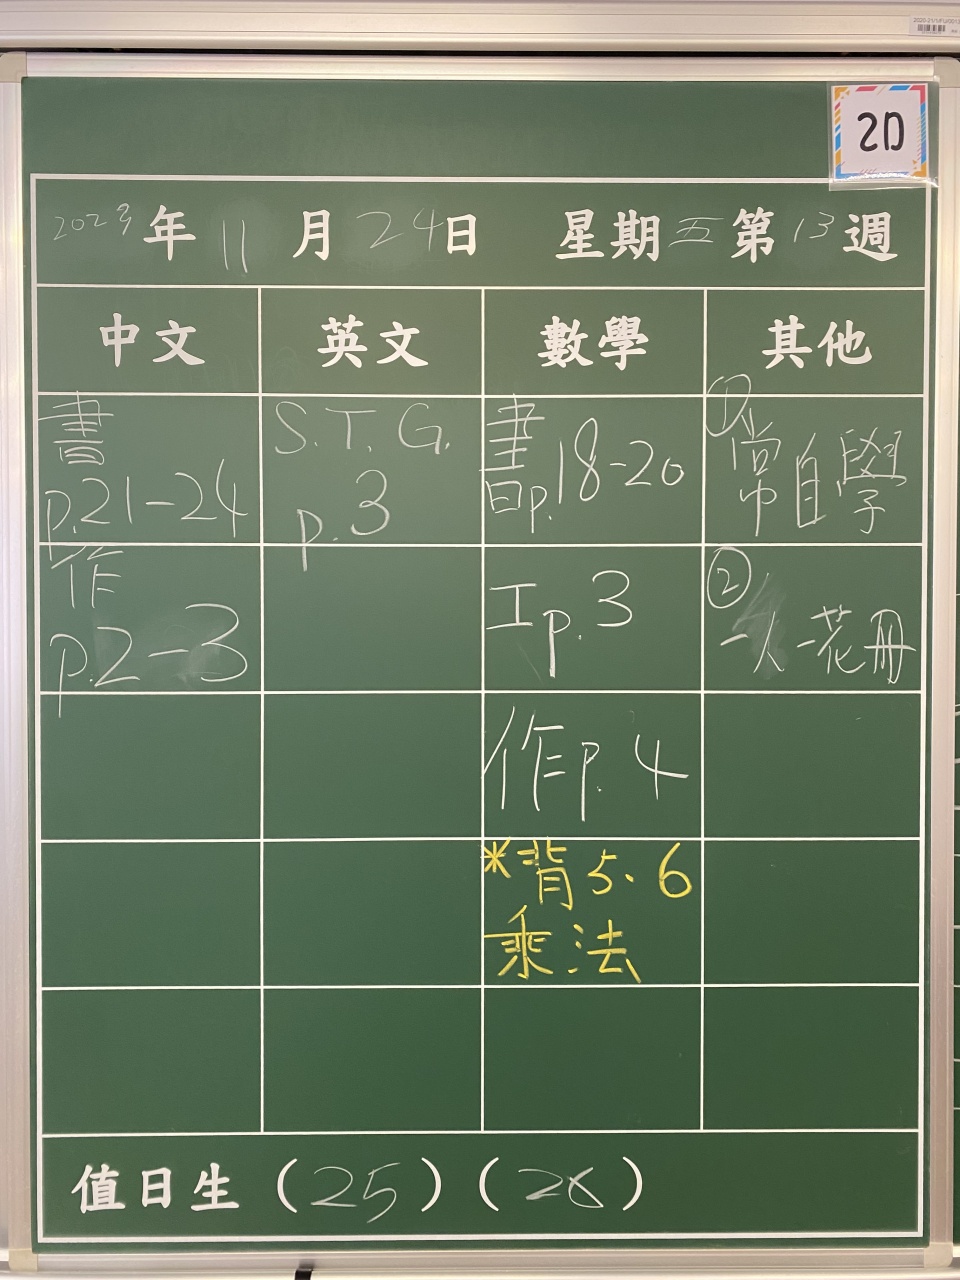 2D
2023年11月24日 星期五第13週
中文 英文 數學 其他
書
p.21-24
S.T.G.
p.3
書p.18-20
①常自學
作
p.2-3
工p.3
②一人一花冊
作p.4
*背5、6
乘法
值日生（25）（26）